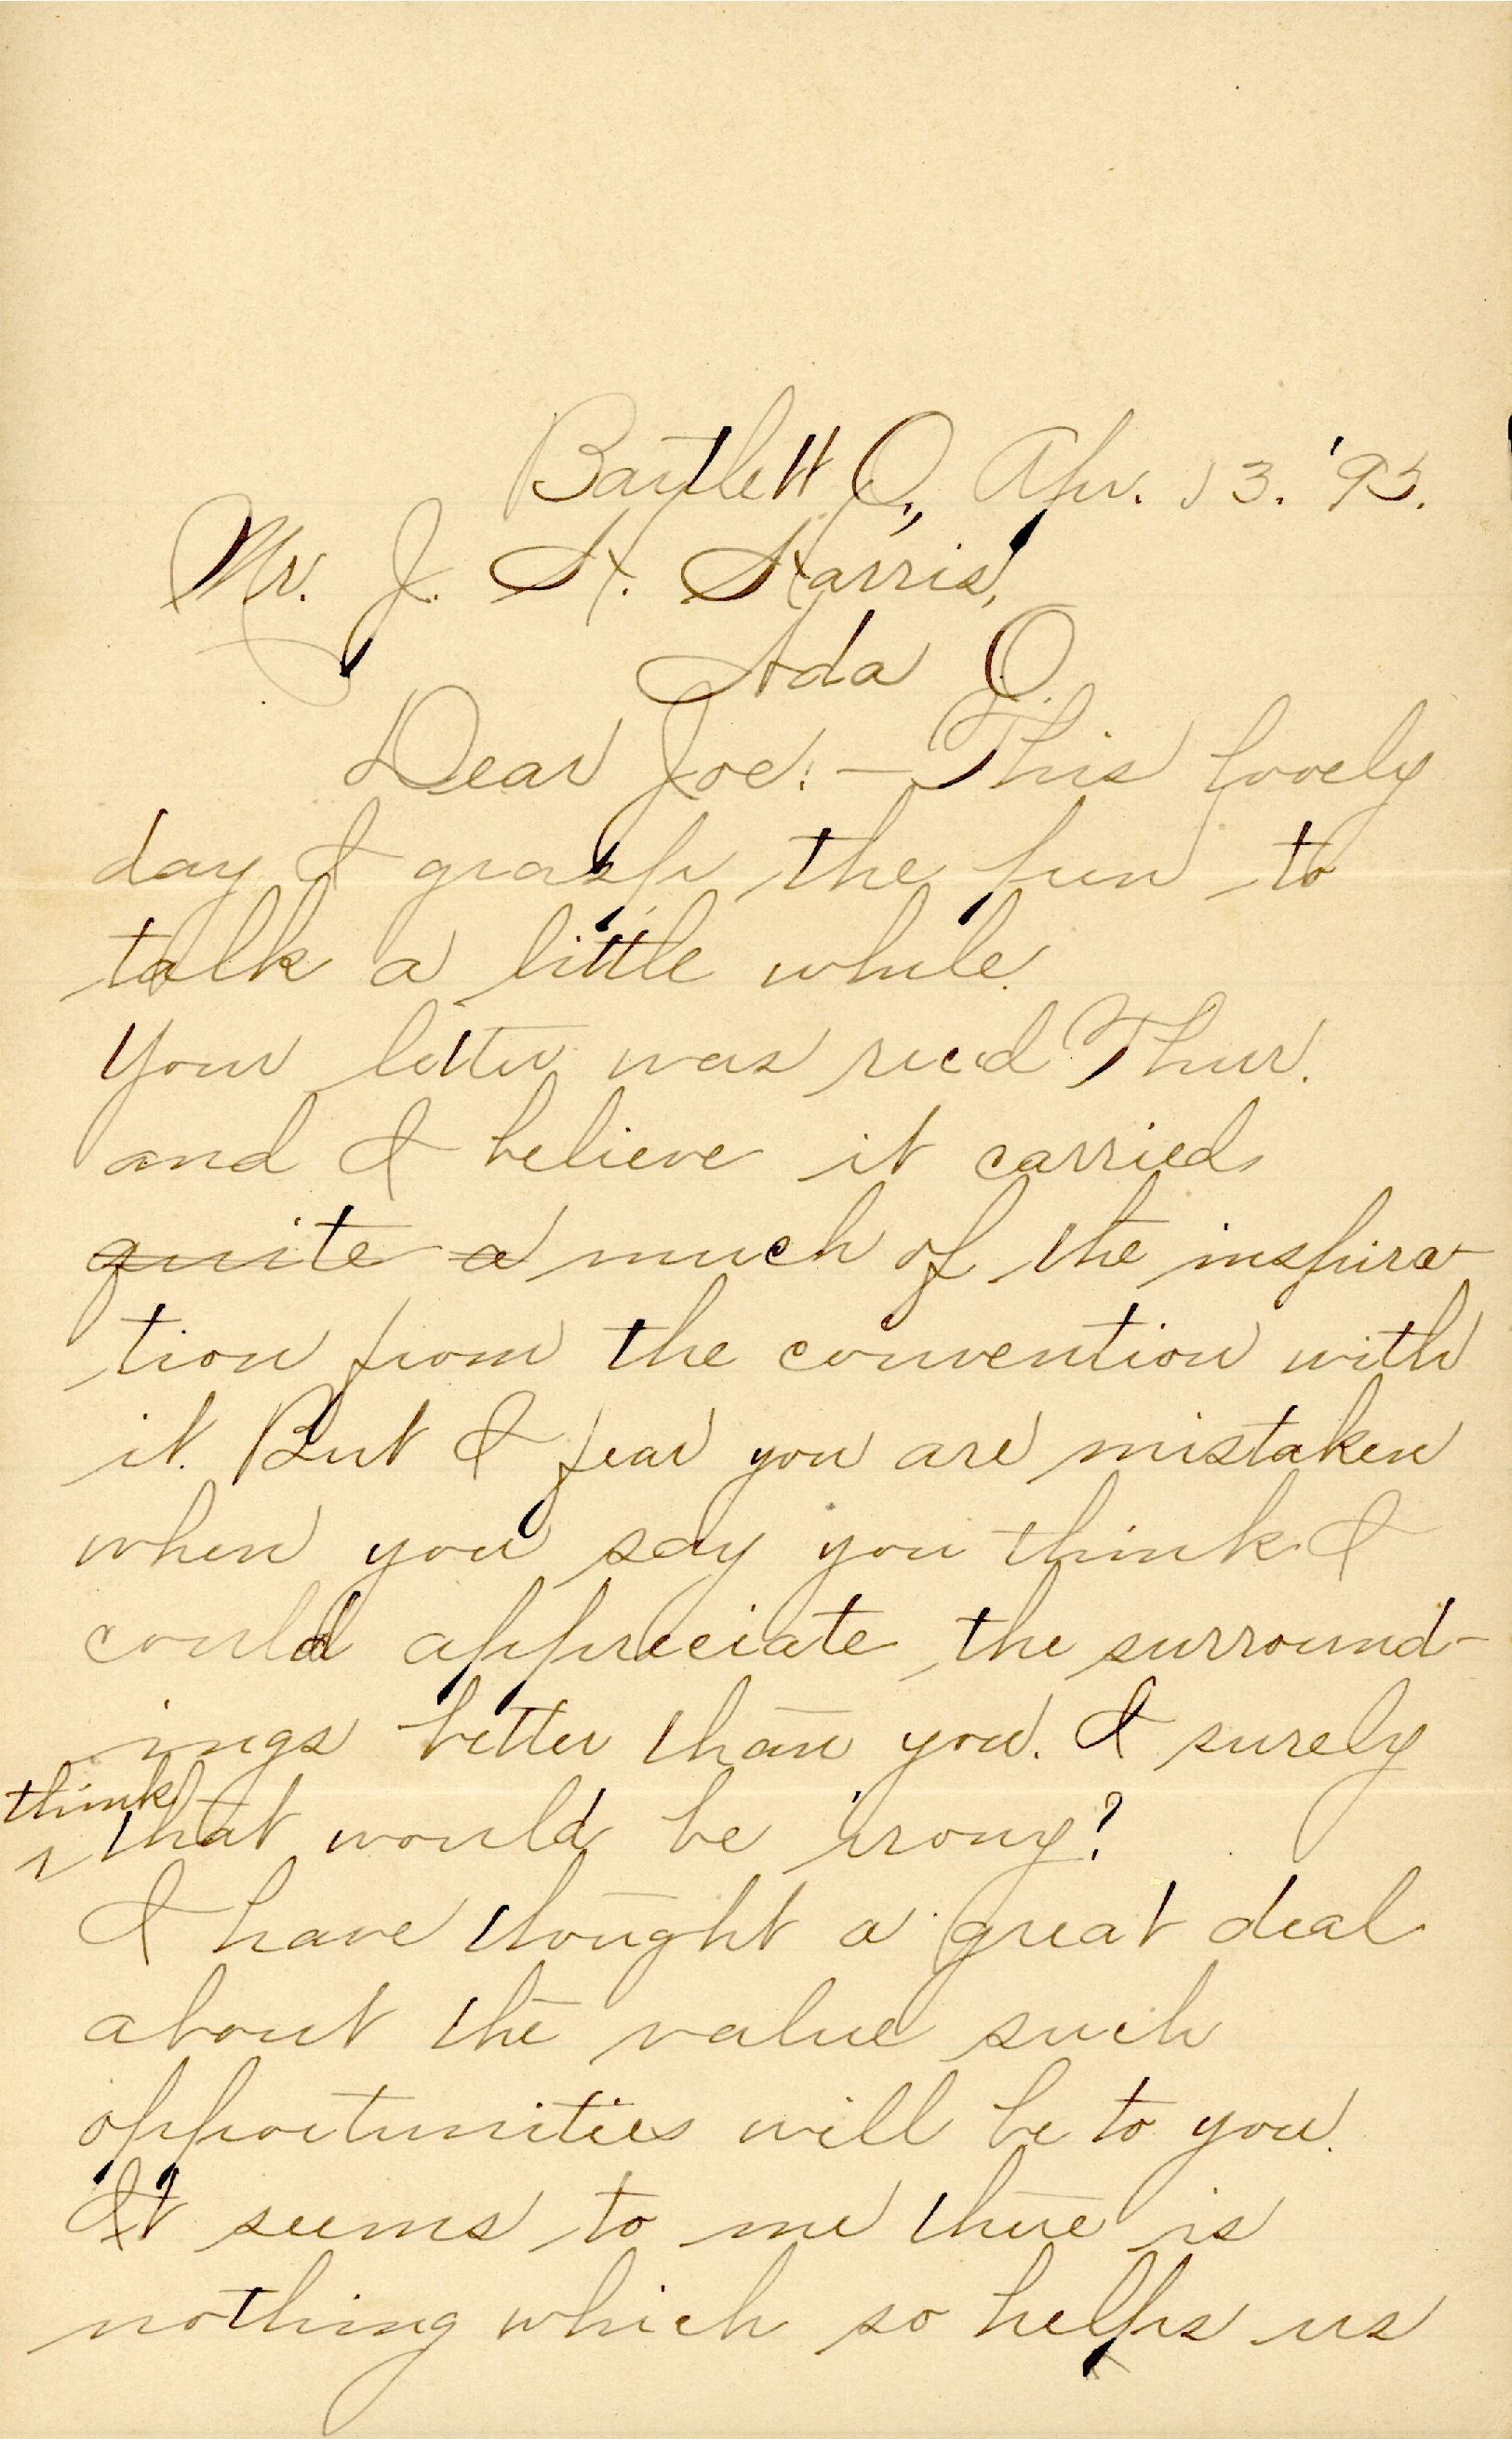 Bartlett O., Apr. 13. '95.
Mr. J. H. Harris,
Ada O.
Dear Joe: — This lovely
day I grasp the pen to
talk a little while.
Your letter was rec'd Thur.
and I believe it carried
quite a much of the inspira-
tion from the convention with
it. But I fear you are mistaken
when you say you think I
could appreciate the surround-
ings better than you. I surely
think that would be irony?
I have thought a great deal
about the value such
opportunities will be to you.
It seems to me there is
nothing which so helps us